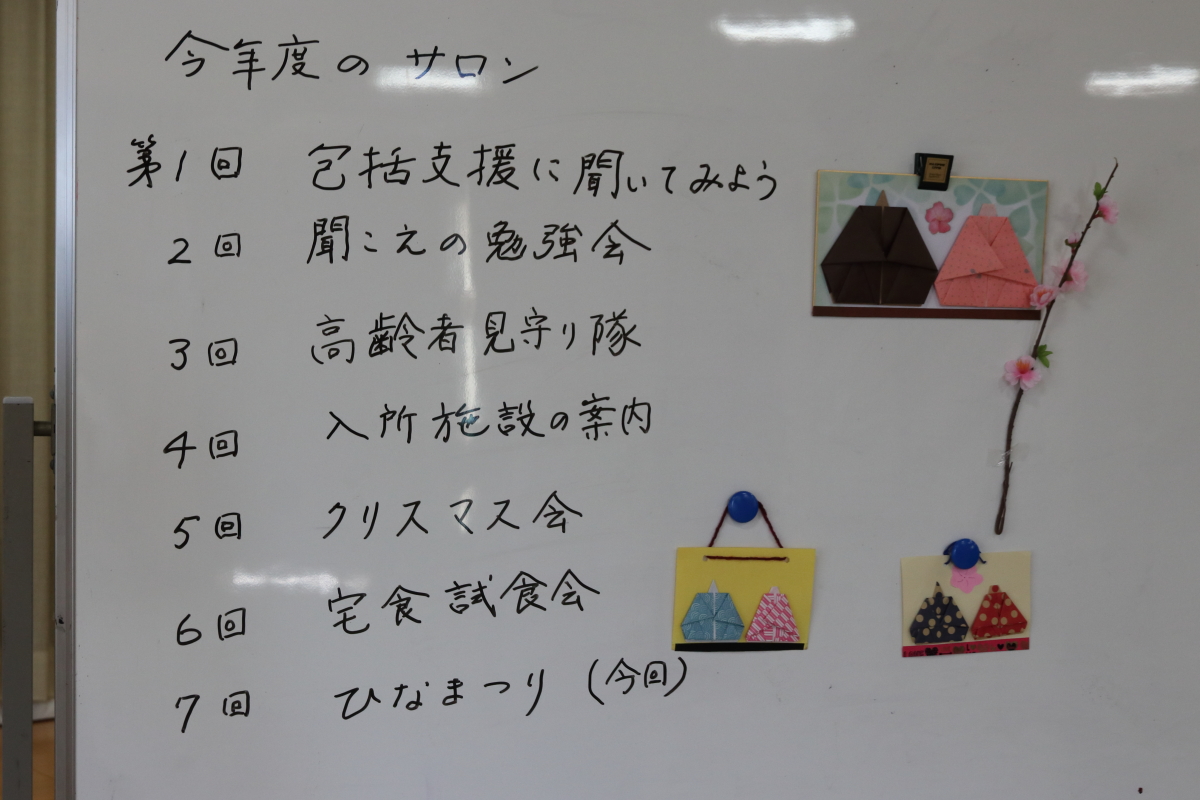 今年度の サロン
第1回 包括支援に聞いてみよう
2回 聞こえの勉強会
3回 高齢者見守り隊
4回 入所施設の案内
5回 クリスマス会
6回 宅食試食会
7回 ひなまつり (今回)